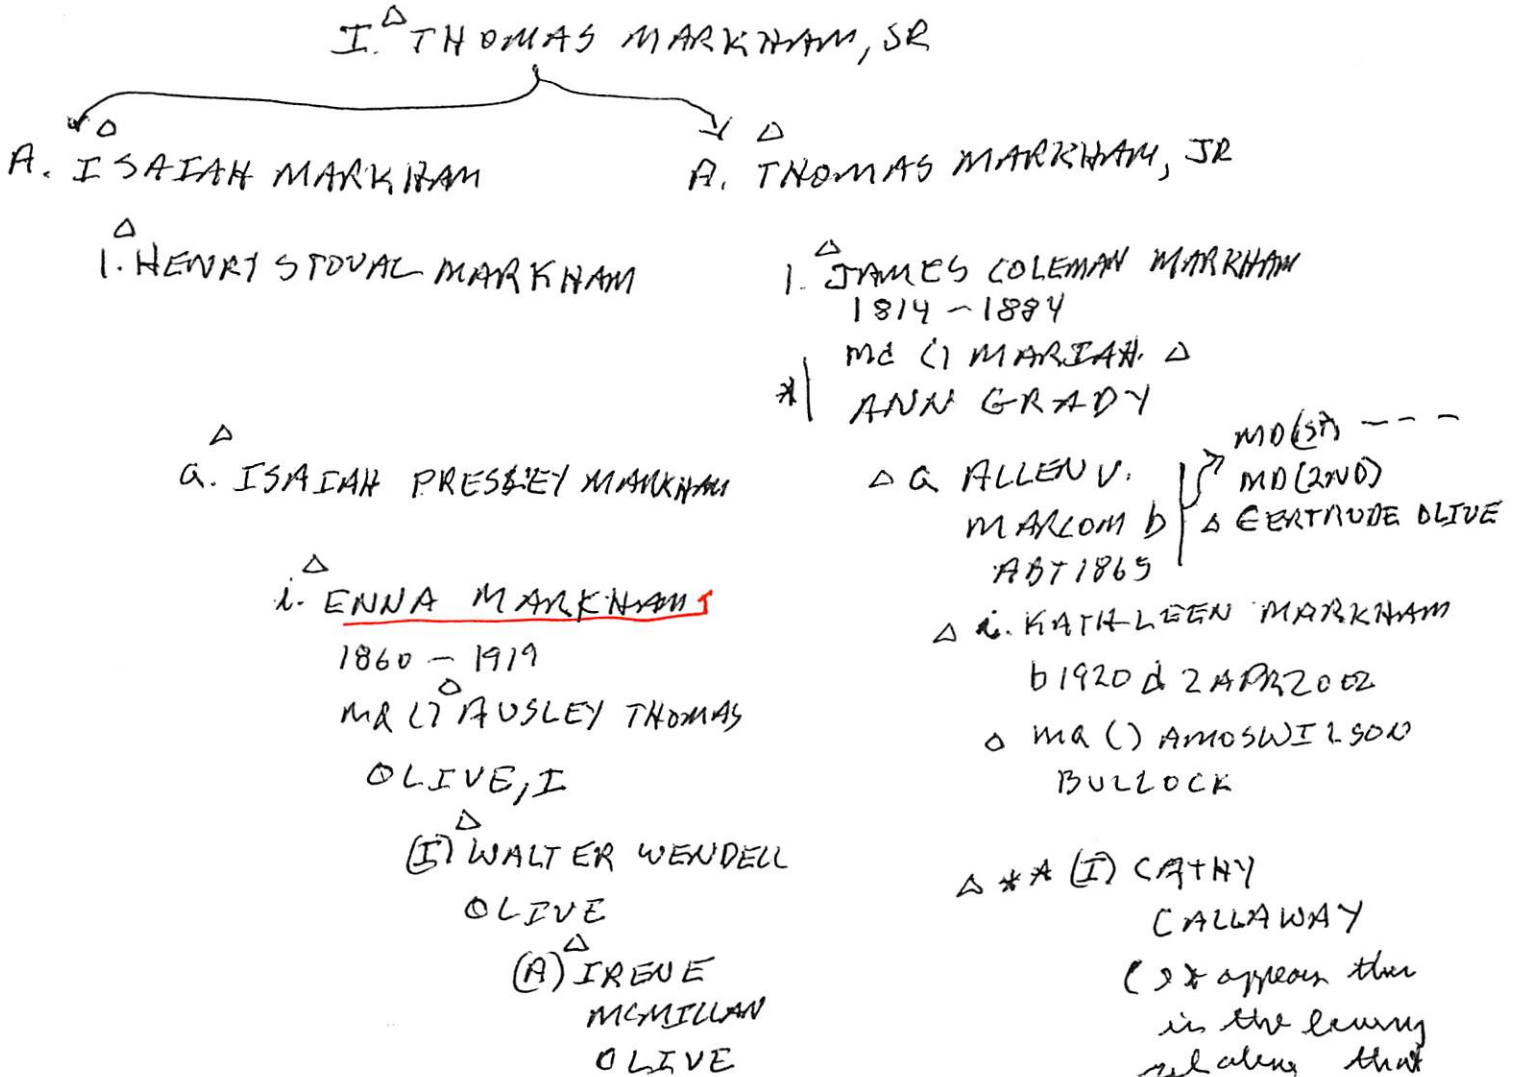 I. THOMAS MARKHAM, SR
A. ISAIAH MARKHAM
1. HENRY STOVAL MARKHAM
a. ISAIAH PRESLEY MARKHAM
i. ENNA MARKHAM
1860 - 1919
md () AUSLEY THOMAS
OLIVE, I
(I) WALTER WENDELL
OLIVE
(A) IRENE
MCMILLAN
OLIVE
A. THOMAS MARKHAM, JR
1. JAMES COLEMAN MARKHAM
1814 - 1884
md () MARIAH
* ANN GRADY
a ALLEN V.
MARCOM b
ABT 1865
MD (1ST) - - -
MD (2ND)
GERTRUDE OLIVE
i. KATHLEEN MARKHAM
b 1920 d 2 APR 2002
md () AMOS WILSON
BULLOCK
** (I) CATHY
CALLAWAY
( It appears this
is the
that